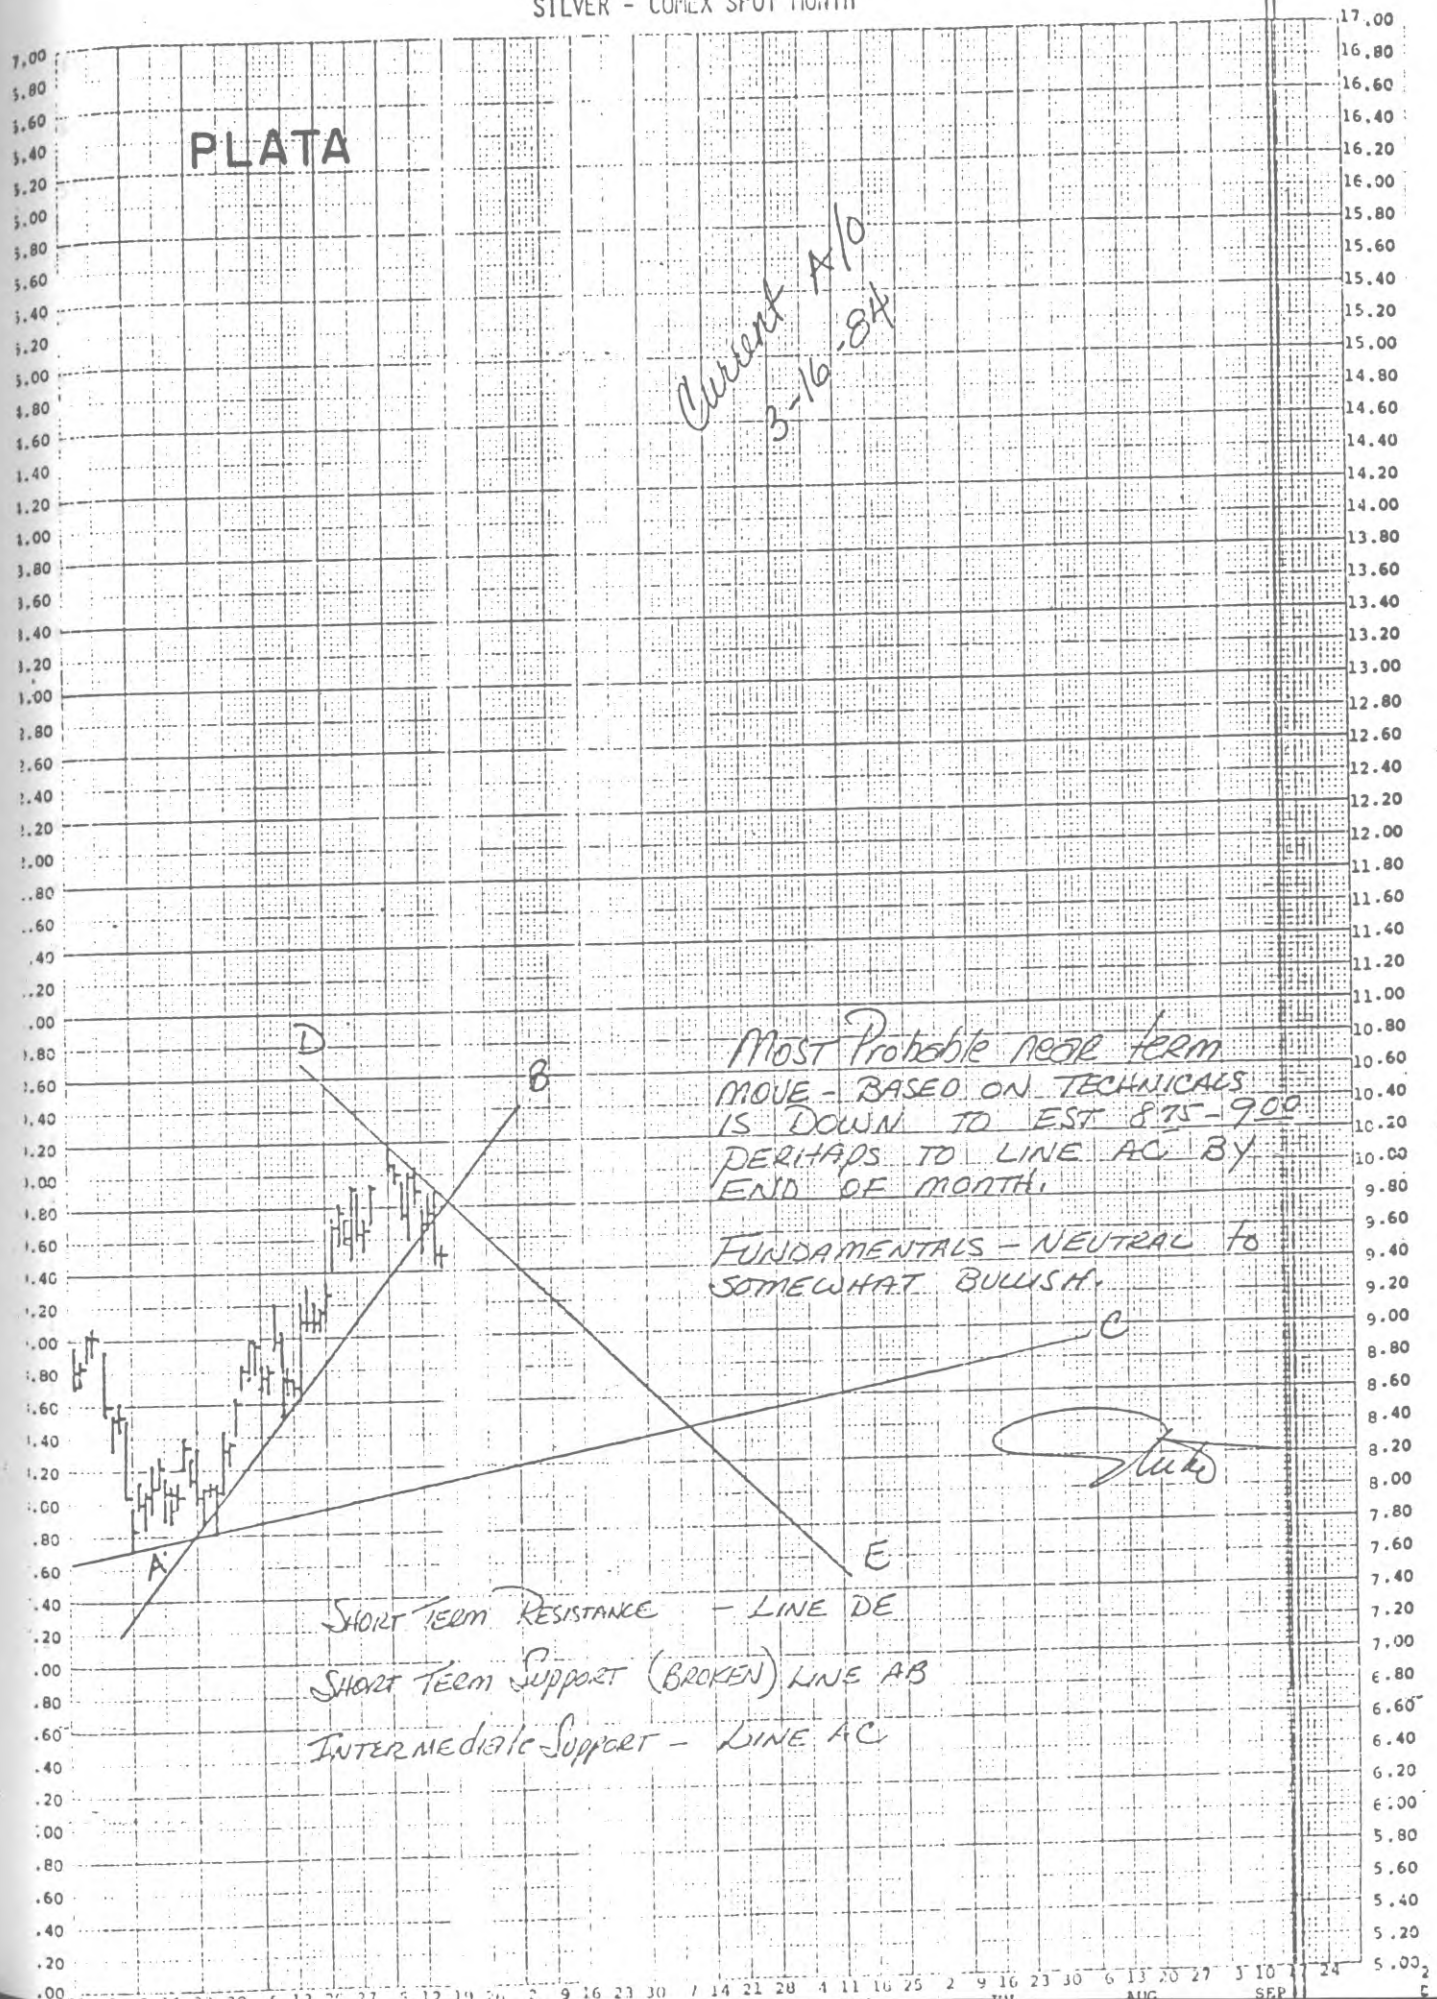 SILVER - COMEX SPOT MONTH
PLATA
Current A/O
3-16-84
17.00
16.80
16.60
16.40
16.20
16.00
15.80
15.60
15.40
15.20
15.00
14.80
14.60
14.40
14.20
14.00
13.80
13.60
13.40
13.20
13.00
12.80
12.60
12.40
12.20
12.00
11.80
11.60
11.40
11.20
11.00
10.80
10.60
10.40
10.20
10.00
9.80
9.60
9.40
9.20
9.00
8.80
8.60
8.40
8.20
8.00
7.80
7.60
7.40
7.20
7.00
6.80
6.60
6.40
6.20
6.00
5.80
5.60
5.40
5.20
5.00
D
B
MOST Probable near term
MOVE - BASED ON TECHNICALS
IS DOWN TO EST 875-900
PERHAPS TO LINE AC BY
END OF MONTH.
FUNDAMENTALS - NEUTRAL to
SOMEWHAT BULLISH.
C
A
E
SHORT TERM RESISTANCE - LINE DE
SHORT TERM SUPPORT (BROKEN) LINE AB
INTERMEDIATE SUPPORT - LINE AC
9 16 23 30 7 14 21 28 4 11 18 25 2 9 16 23 30 6 13 20 27 3 10 17 24
AUG SEP